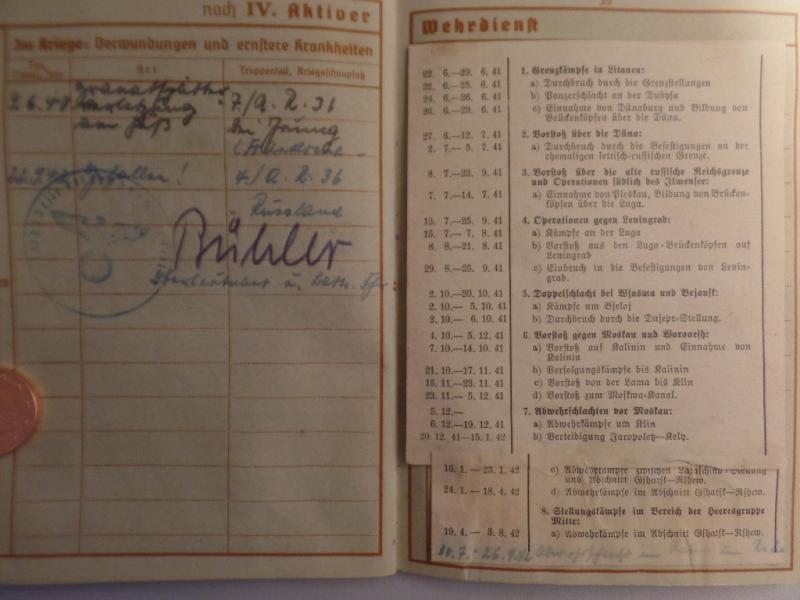 noch IV. Aktiver
Im Kriege: Verwundungen und ernstere Krankheiten
Art
Truppenteil, Kriegsschauplatz
Granatsplitter
2.6.40
7./A. R. 36
am
bei
gefallen!
4./A. R. 36
Russland
Bühler
Oberleutnant u.
Wehrdienst
22. 6.—29. 6. 41 1. Grenzkämpfe in Litauen:
22. 6.—25. 6. 41 a) Durchbruch durch die Grenzstellungen
24. 6.—26. 6. 41 b) Panzerschlacht an der Dubysa
26. 6.—29. 6. 41 c) Einnahme von Dünaburg und Bildung von
Brückenköpfen über die Düna.
27. 6.—12. 7. 41 2. Vorstoß über die Düna:
2. 7.— 5. 7. 41 a) Durchbruch durch die Befestigungen an der
ehemaligen lettisch-russischen Grenze.
8. 7.—23. 9. 41 3. Vorstoß über die alte russische Reichsgrenze
und Operationen südlich des Ilmensee:
7. 7.—14. 7. 41 a) Einnahme von Pleskau, Bildung von Brücken-
köpfen über die Luga.
13. 7.—25. 9. 41 4. Operationen gegen Leningrad:
15. 7.— 7. 8. 41 a) Kämpfe an der Luga
8. 8.—21. 8. 41 b) Vorstoß aus den Luga-Brückenköpfen auf
Leningrad
29. 8.—25. 9. 41 c) Einbruch in die Befestigungen von Lenin-
grad.
2. 10.—20. 10. 41 5. Doppelschlacht bei Wjasma und Brjansk:
2. 10.— 5. 10. 41 a) Kämpfe um Bjeloj
2. 10.— 6. 10. 41 b) Durchbruch durch die Dnjepr-Stellung.
4. 10.— 5. 12. 41 6. Vorstoß gegen Moskau und Woronesh:
7. 10.—14. 10. 41 a) Vorstoß auf Kalinin und Einnahme von
Kalinin
21. 10.—17. 11. 41 b) Verfolgungskämpfe bis Kalinin
15. 11.—23. 11. 41 c) Vorstoß von der Lama bis Klin
23. 11.— 5. 12. 41 d) Vorstoß zum Moskwa-Kanal.
5. 12.— 7. Abwehrschlachten vor Moskau:
6. 12.—19. 12. 41 a) Abwehrkämpfe um Klin
20. 12. 41—15. 1. 42 b) Verteidigung Jaropoletz—Kely.
16. 1. — 23. 1. 42 c) Abwehrkämpfe zwischen
und Abschnitt Gshatsk—Rshew.
24. 1. — 18. 4. 42 d) Abwehrkämpfe im Abschnitt Gshatsk—Rshew.
8. Stellungskämpfe im Bereich der Heeresgruppe
Mitte:
19. 4. — 3. 8. 42 a) Abwehrkämpfe im Abschnitt Gshatsk—Rshew.
Abwehrschlacht im